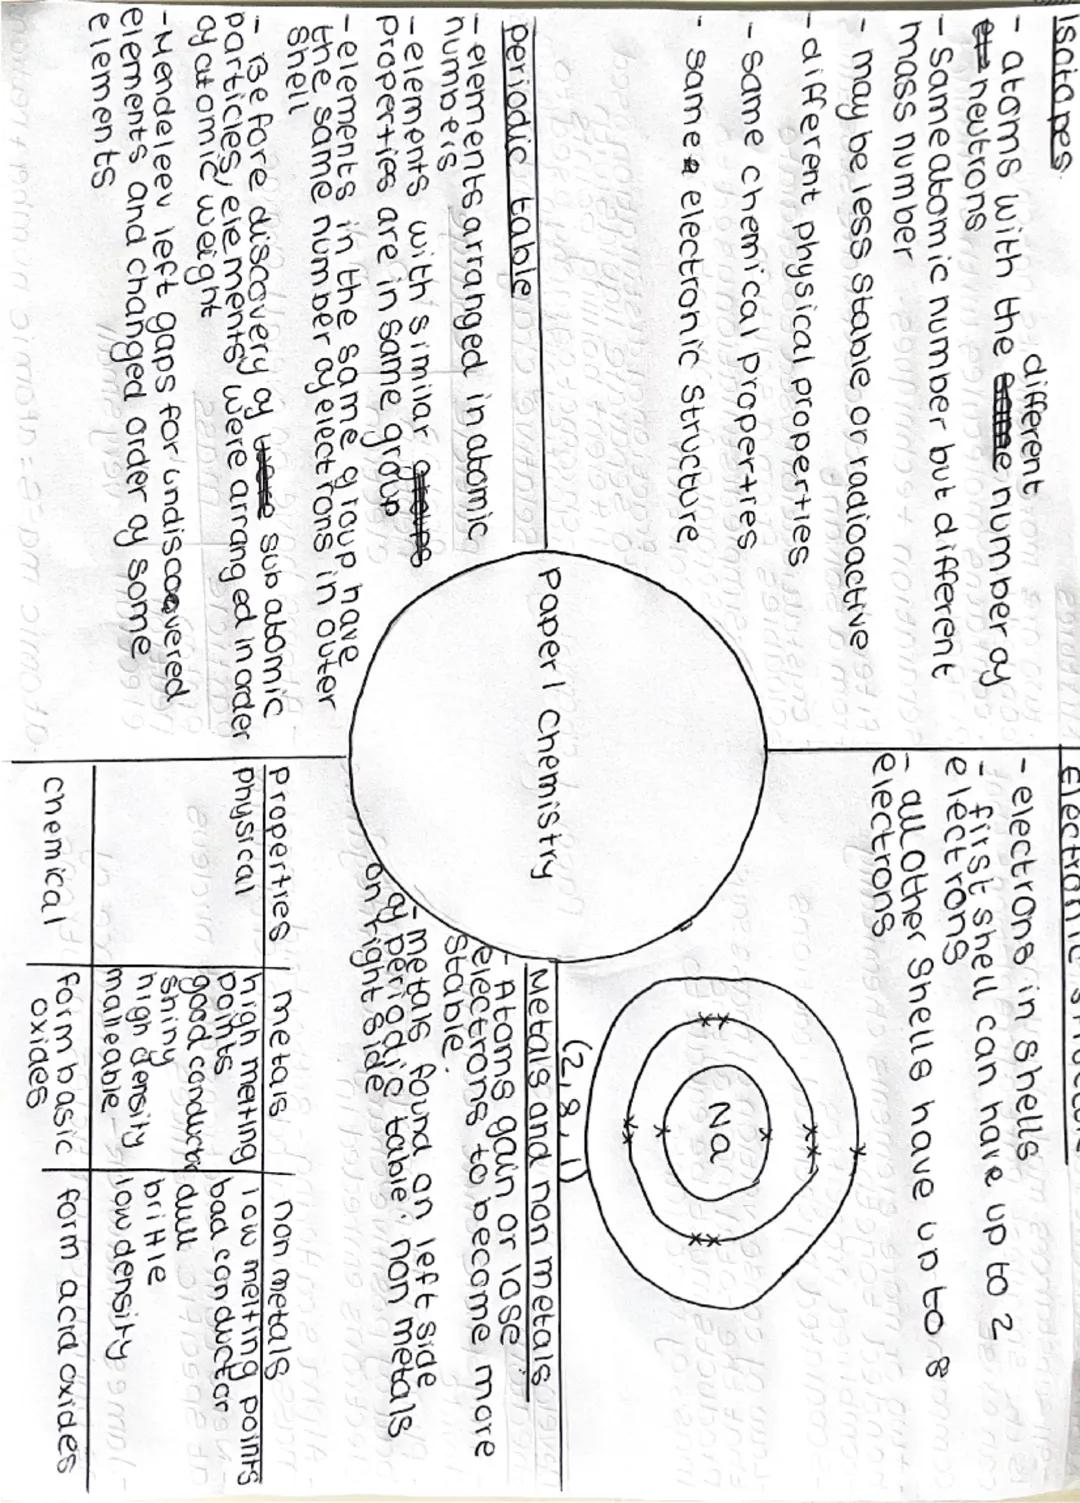 Isotopes
different
- atoms with the same number of
neutrons
- Same atomic number but different
mass number
- may be less stable or radioactive
- different physical properties
- same chemical properties
- same electronic structure
Electronic structure
- electrons in shells
- first shell can have up to 2
electrons
- all other shells have up to 8
electrons
Na
(2,8,1)
Paper 1 chemistry
periodic table
- elements arranged in atomic
numbers
- elements with similar groups
properties are in same group
- elements in the same group have
the same number of electrons in outer
shell
- Before discovery of were sub atomic
particles, elements were arranged in order
of atomic weight
- Mendeleev left gaps for undiscovered
elements and changed order of some
elements
Metals and non metals
- Atoms gain or lose
electrons to become more
stable.
- metals found on left side
of periodic table. non metals
on right side
Properties metals non metals
physical high melting low melting points
points bad conductor
good conductor dull
shiny brittle
high density low density
malleable
chemical form basic form acid oxides
oxides